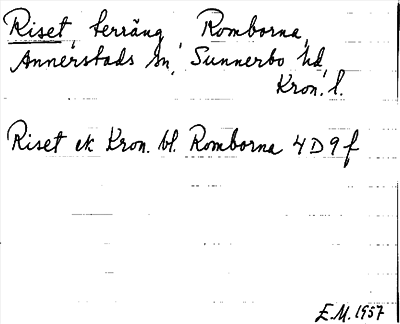 Riset, terräng, Romborna,
Annerstads sn, Sunnerbo hd
Kron. l.
Riset ek Kron. bl. Romborna 4D9f
E.M. 1957